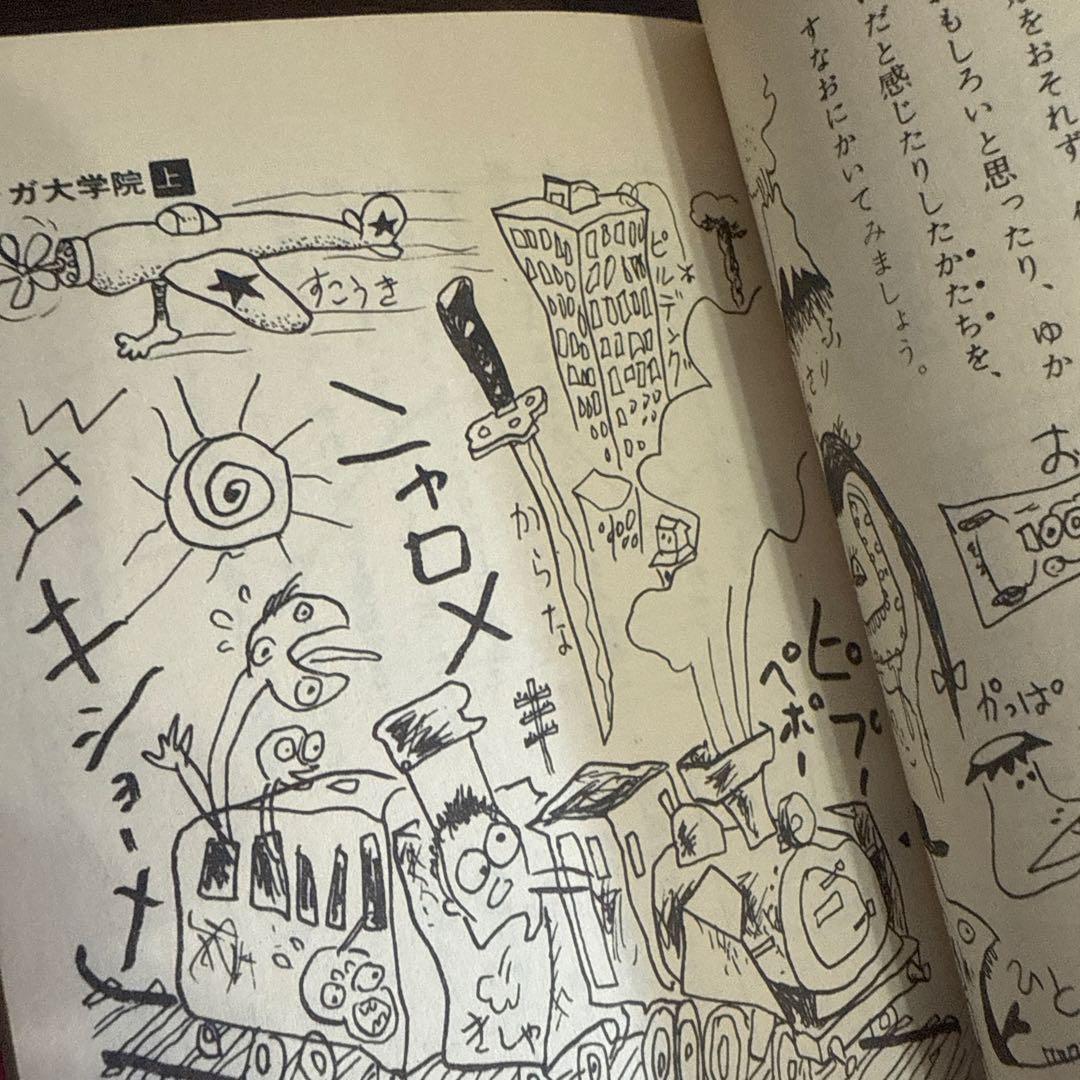 ガ大学院 上
をおそれず
もしろいと思ったり、ゆか
だと感じたりしたかたちを、
すなおにかいてみましょう。
すこうき
ビルデング
からたな
ニャロメ
キショーメ
ピプー
ペポー
きしゃ
お
100
かっぱ
ひと